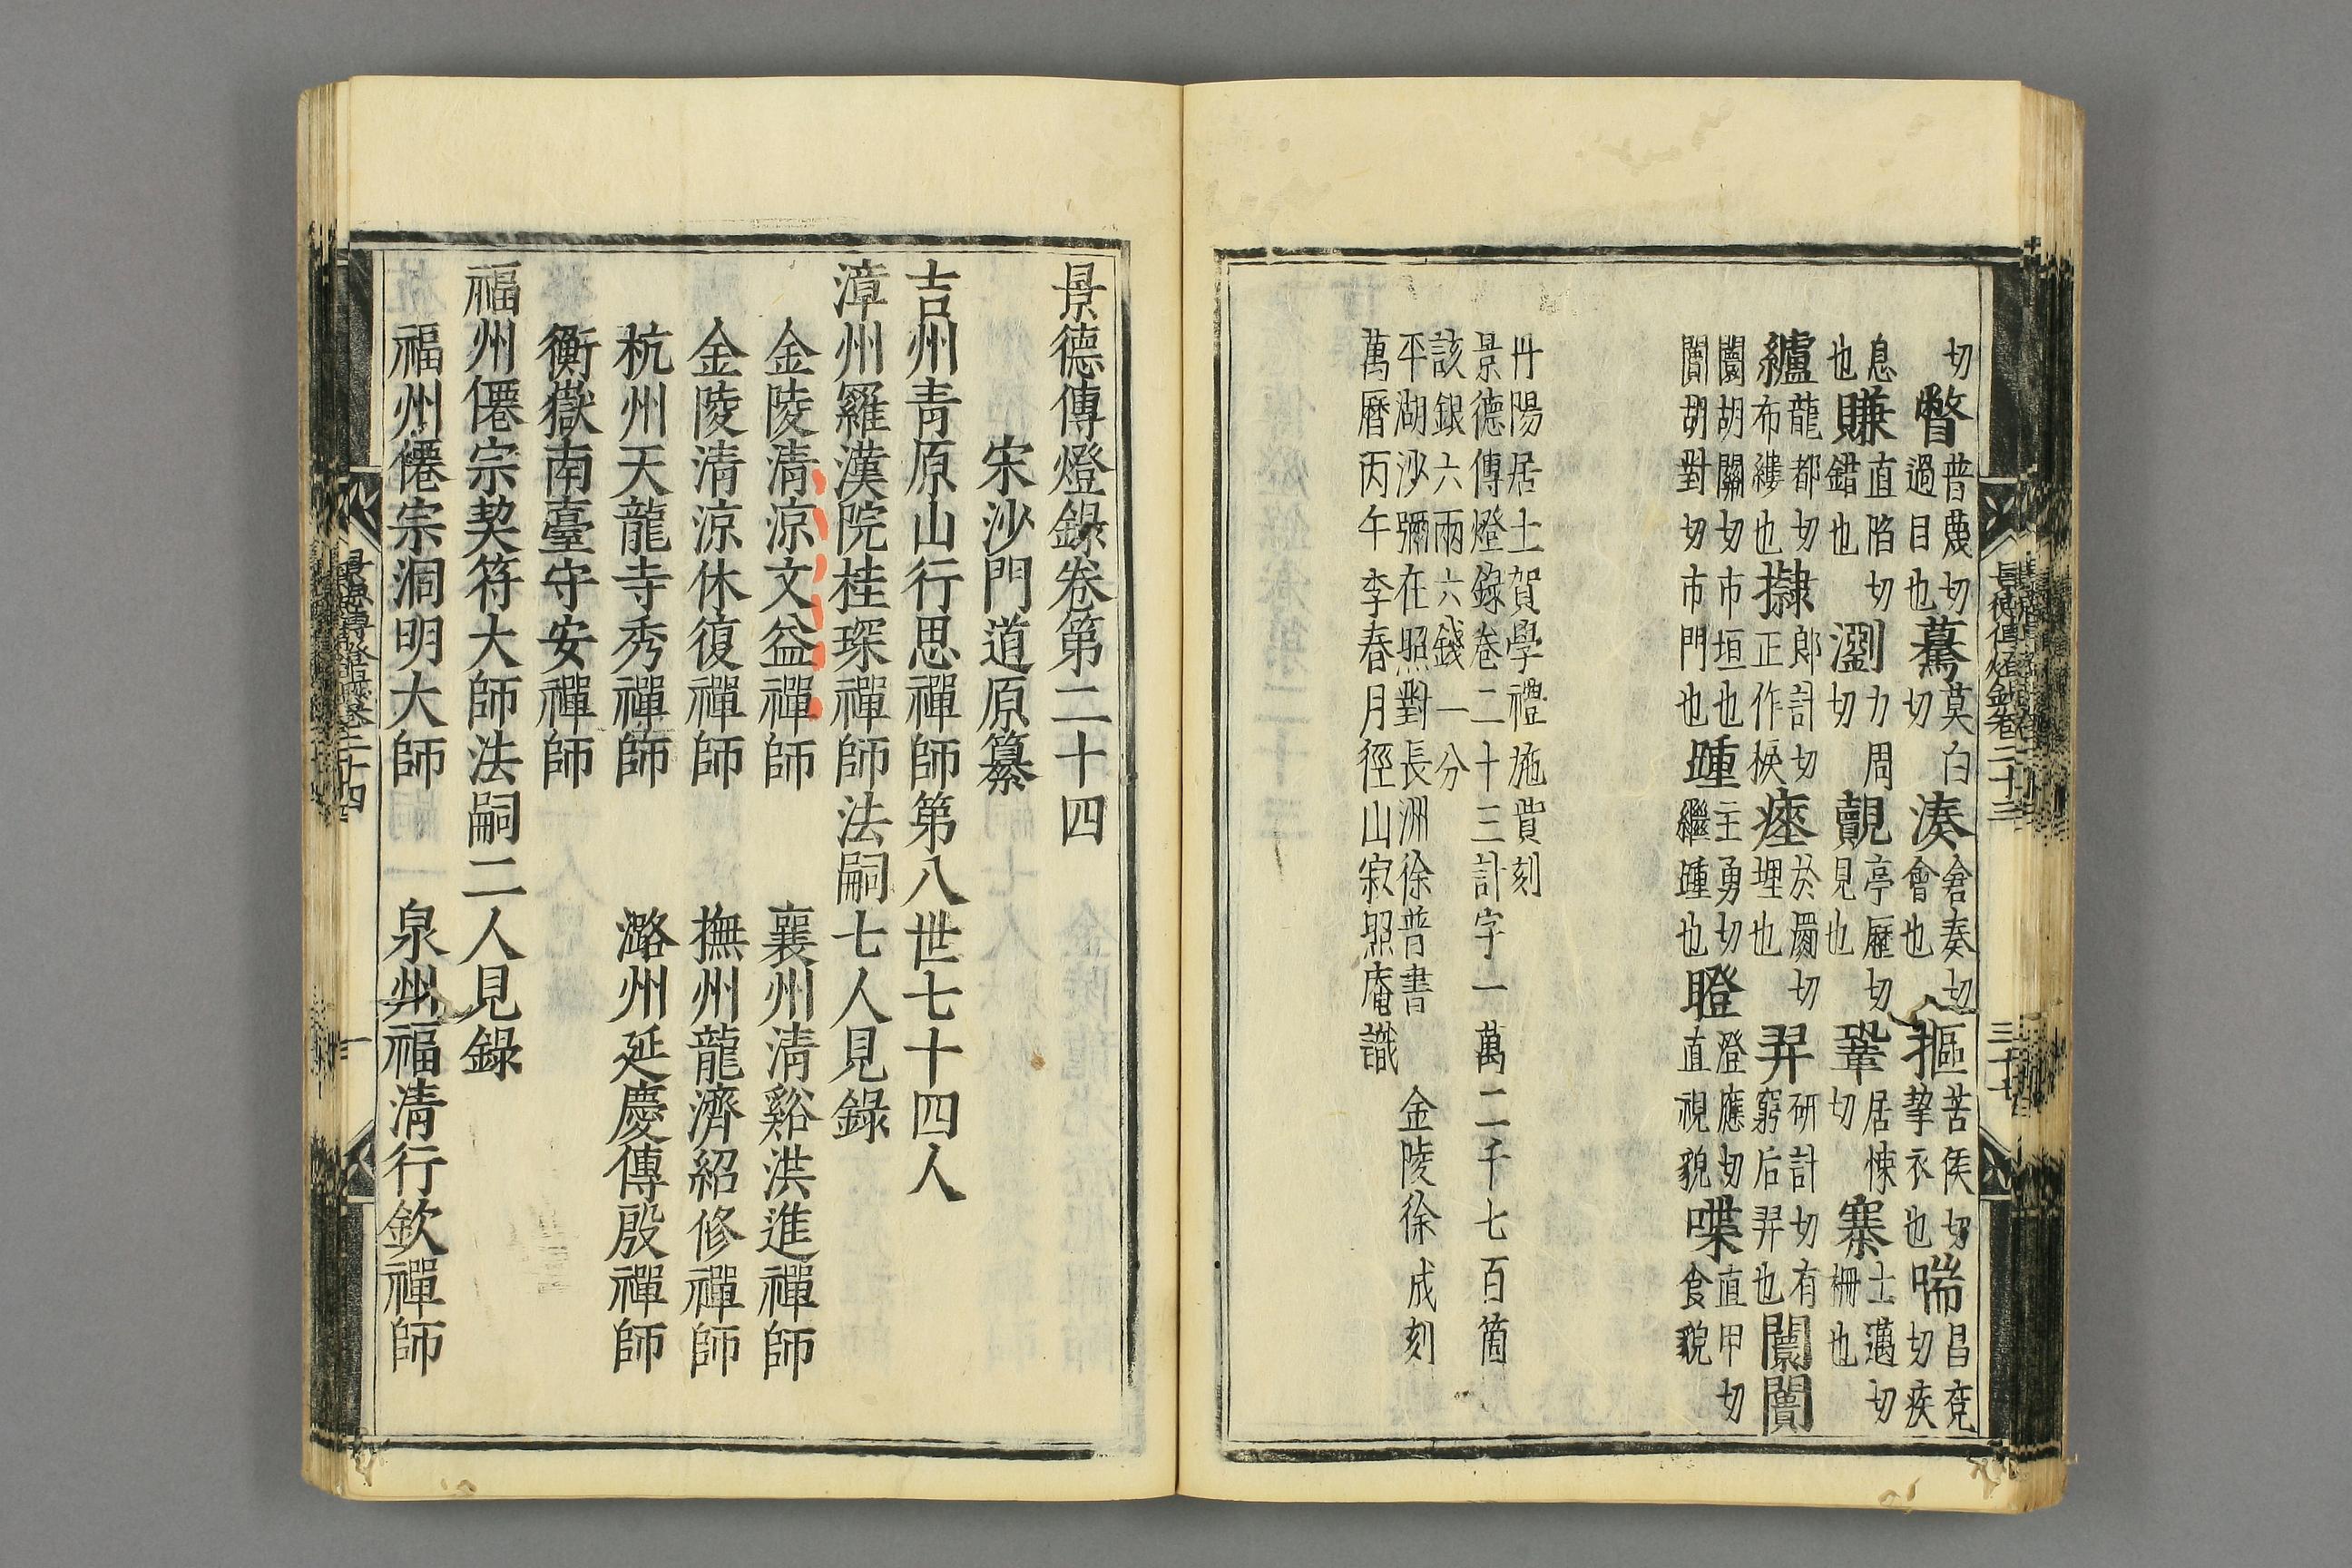 切瞥普蔑切過目也驀莫白切湊倉奏切會也摳苦侯切挈衣也喘昌兖切疾
息也賺直陷切錯也瀏力周切覿亭歷切見也鞏居悚切寨士邁切柵也
纑龍都切布縷也郎計切正作捩瘞於罽切埋也羿研計切有窮后羿也闤闠
闤胡關切市垣也闠胡對切市門也踵主勇切繼踵也瞪澄應切直視貌喋直甲切食貌
丹陽居士賀學禮施貲刻
景德傳燈錄卷二十三計字一萬二千七百箇
該銀六兩六錢一分
平湖沙彌在照對長洲徐普書 金陵徐成刻
萬曆丙午季春月徑山寂照庵識
景德傳燈錄卷第二十四
宋沙門道原纂
吉州青原山行思禪師第八世七十四人
漳州羅漢院桂琛禪師法嗣七人見錄
金陵清涼文益禪師 襄州清谿洪進禪師
金陵清涼休復禪師 撫州龍濟紹修禪師
杭州天龍寺秀禪師 潞州延慶傳殷禪師
衡嶽南臺守安禪師
福州僊宗契符大師法嗣二人見錄
福州僊宗洞明大師 泉州福清行欽禪師